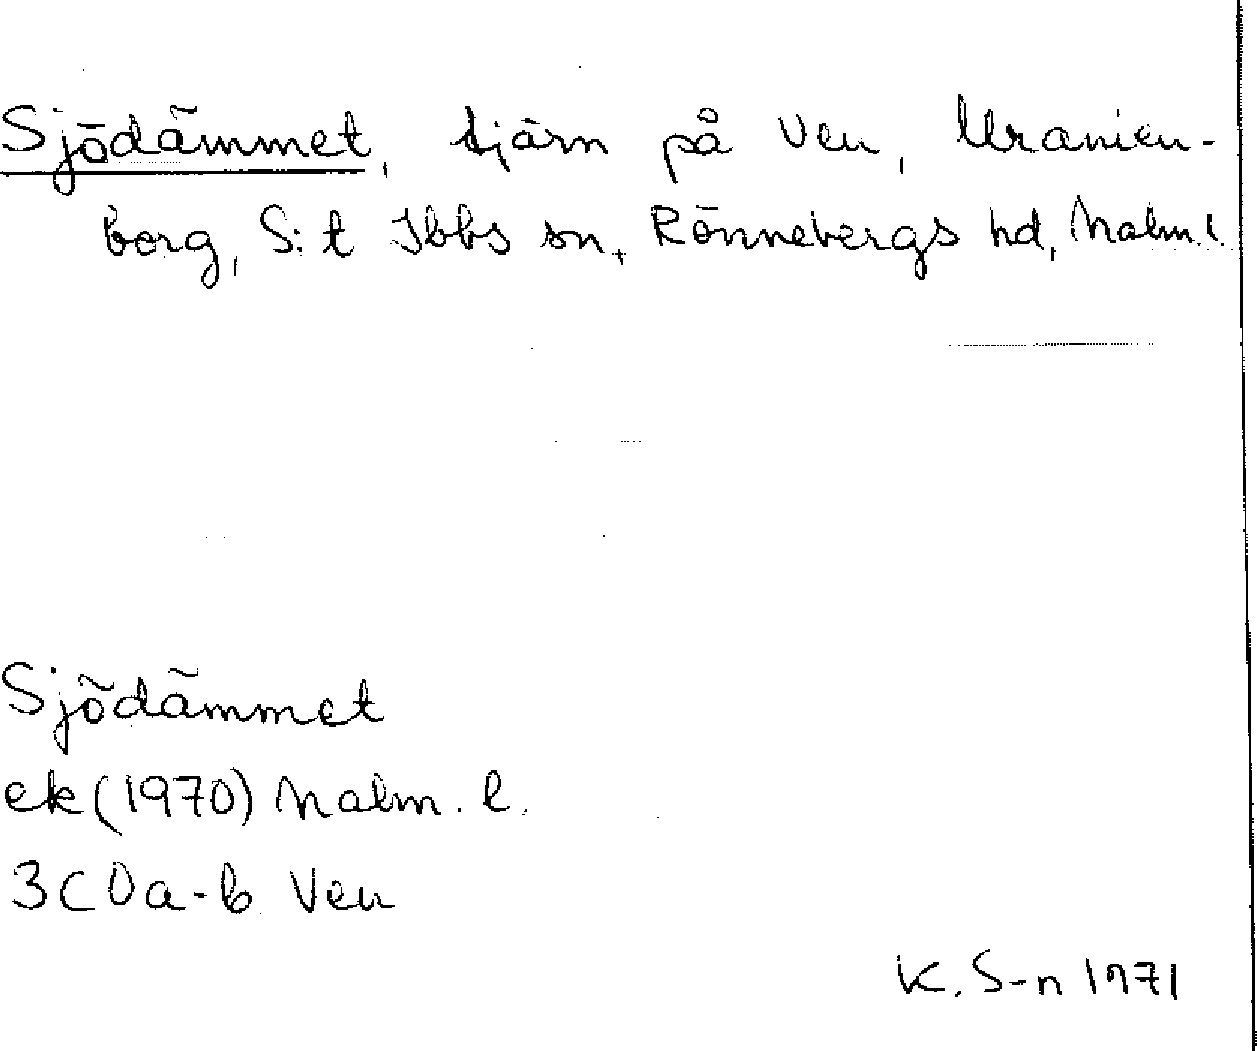 Sjödämmet, tjärn på Ven, Uranien-
borg, S:t Ibbs sn, Rönnebergs hd, Malm.l.
Sjödämmet
ek(1970) Malm. l.
3C 0a-b Ven
K. S-n 1971